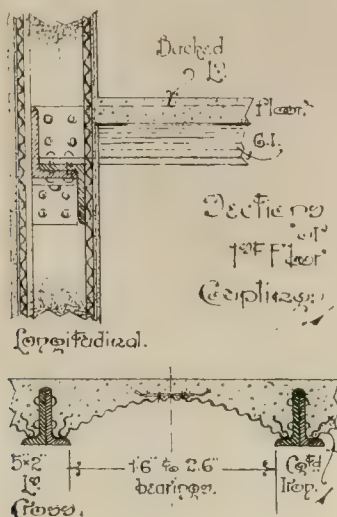 Backed
Floor.
G.I.
Sections
at
1st Floor
Couplings:
Longitudinal.
5"×2"
1'.6" to 2'.6"
bearings.
Cross.
Iron.